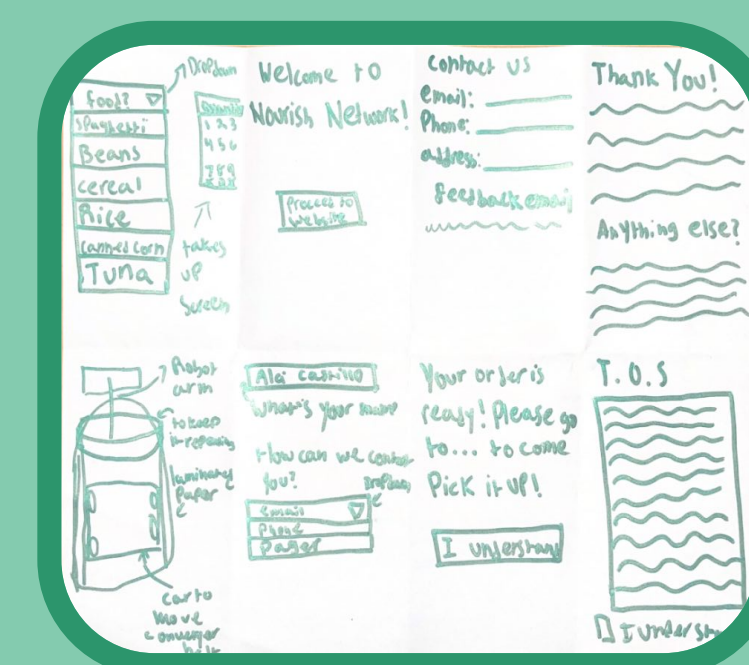 Dropdown
food?
Spaghetti
Beans
cereal
Rice
Canned Corn
Tuna
1 2 3
4 5 6
7 8 9
takes
up
Screen
Welcome to
Nourish Network!
Proceed to
website
Contact us
email:
Phone:
address:
feedback email
Thank You!
Anything else?
Robot
arm
to keep
it
Paper
car to
move
belt
What's your name
How can we contact
you?
Dropdown
Email
Phone
Pager
Your order is
ready! Please go
to... to come
Pick it up!
I understand
T.O.S
I underst